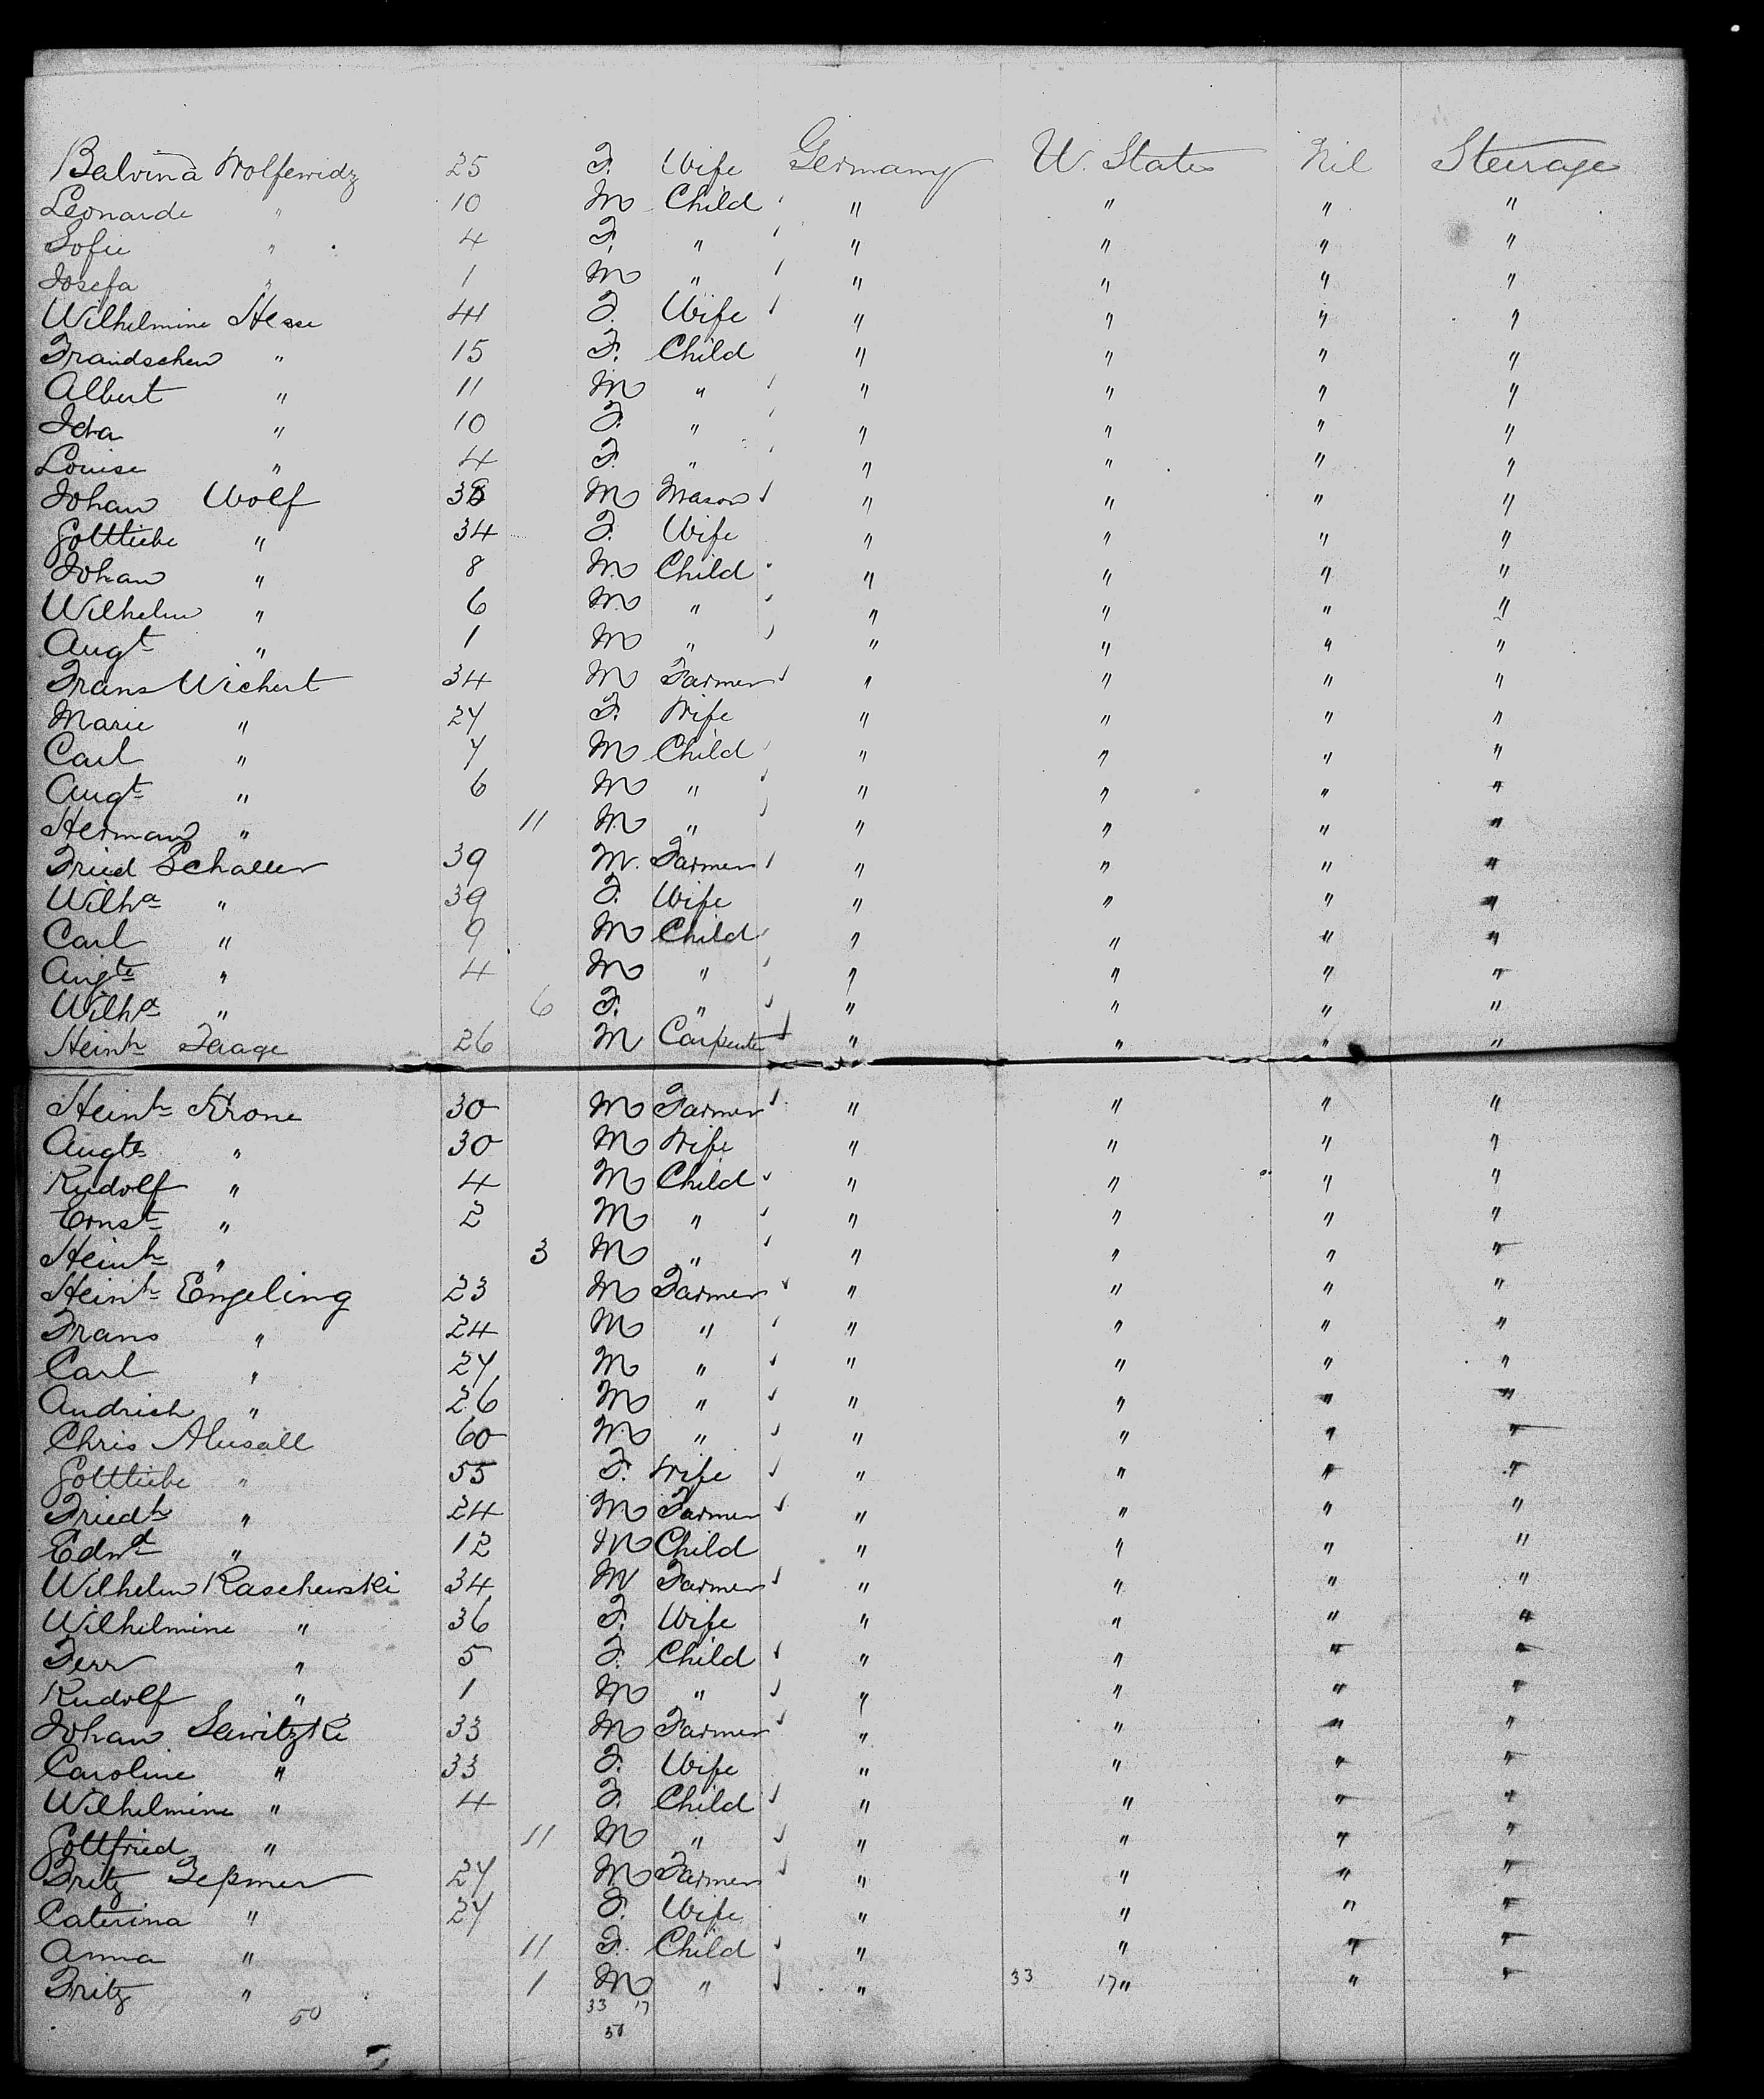 Balvina Wolfewidz 25 F. Wife Germany U. States Nil Steerage
Leonarde " 10 M Child " " " "
Sofie " 4 F. " " " " "
Josefa " 1 M " " " " "
Wilhelmine Hesse 41 F. Wife " " " "
Frandschen " 15 F. Child " " " "
Albert " 11 M " " " " "
Ida " 10 F. " " " " "
Louise " 4 F. " " " " "
Johan Wolf 38 M Mason " " " "
Gottliebe " 34 F. Wife " " " "
Johan " 8 M Child " " " "
Wilhelm " 6 M " " " " "
Augt " 1 M " " " " "
Frans Wichert 34 M Farmer " " " "
Marie " 27 F. Wife " " " "
Carl " 7 M Child " " " "
Augt " 6 M " " " " "
Hermann " 11 M " " " " "
Fried Schaller 39 M. Farmer " " " "
Wilha " 39 F. Wife " " " "
Carl " 9 M Child " " " "
Augte " 4 M " " " " "
Wilha " 6 F. " " " " "
Heinh Taage 26 M Carpenter " " " "
Heinh Krone 30 M Farmer " " " "
Augte " 30 M Wife " " " "
Rudolf " 4 M Child " " " "
Ernst " 2 M " " " " "
Heinh " 3 M " " " " "
Heinh Engeling 23 M Farmer " " " "
Frans " 24 M " " " " "
Carl " 27 M " " " " "
Audrich " 26 M " " " " "
Chris Alusall 60 M " " " " "
Gottliebe " 55 F. Wife " " " "
Friedh " 24 M Farmer " " " "
Edwd " 12 M Child " " " "
Wilhelm Raschewski 34 M Farmer " " " "
Wilhelmine " 36 F. Wife " " " "
Ferr " 5 F. Child " " " "
Rudolf " 1 M " " " " "
Johan Sawitzki 33 M Farmer " " " "
Caroline " 33 F. Wife " " " "
Wilhelmine " 4 F. Child " " " "
Gottfried " 11 M " " " " "
Fritz Teßmer 27 M Farmer " " " "
Caterina " 27 F. Wife " " " "
Anna " 11 F. Child " " " "
Fritz " 1 M " " 33 17 " " "
50 33 17
50